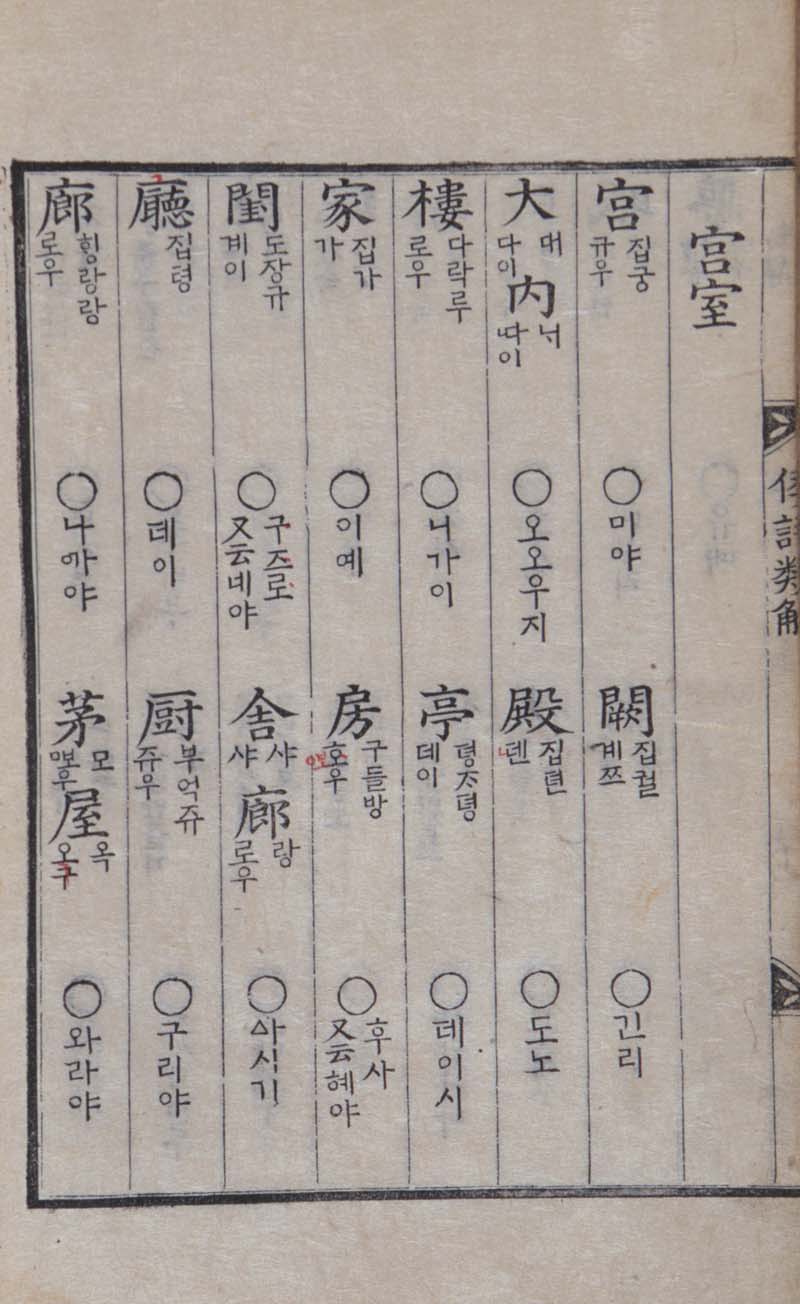 倭語類解
宮室
宮 집궁 규우 ○미야
闕 집궐 계쯔 ○긴리
大 대 다이 內 ᄂᆡ 따이 ○오오우지
殿 집뎐 뎬 ○도노
樓 다락루 로우 ○니가이
亭 뎡ᄌᆞ뎡 데이 ○데이시
家 집가 가 ○이예
房 구들방 호우 ○후사 又云헤야
閨 도장규 계이 ○구즈로 又云녜야
舍 샤 샤 廊 랑 로우 ○ᅀᅡ시기
廳 집령 ○데이
厨 부억쥬 쥬우 ○구리야
廊 ᄒᆡᆼ랑랑 로우 ○나ᄭᅡ야
茅 모 屋 옥 오구 ○와라야